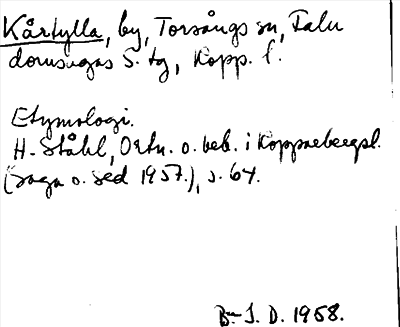 Kårtylla, by, Torsångs sn, Falu
domsagas s. tg, Kopp. l.
Etymologi.
H. Ståhl, Ortn. o. beb. i Kopparbergsl.
(Saga o. sed 1957.), s. 64.
Bm J. D. 1958.